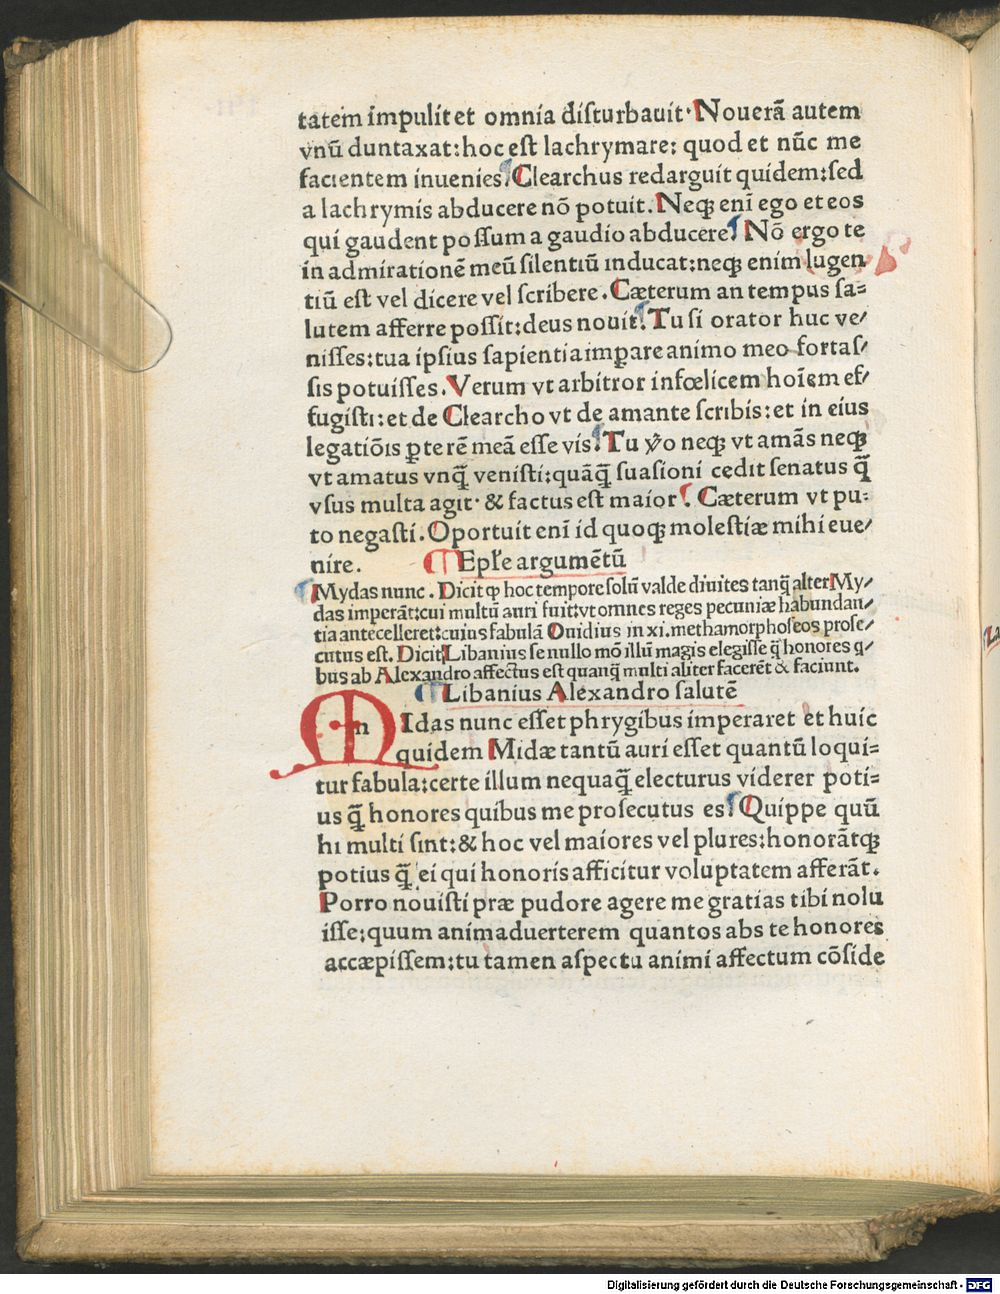 tatem impulit et omnia disturbauit· Nouerā autem
vnū duntaxat: hoc est lachrymare: quod et nūc me
facientem inuenies. Clearchus redarguit quidem: sed
a lachrymis abducere nō potuit. Neqꝫ enī ego et eos
qui gaudent possum a gaudio abducere. Nō ergo te
in admirationē meū silentiū inducat: neqꝫ enim lugen
tiū est vel dicere vel scribere. Cæterum an tempus sa=
lutem afferre possit: deus nouit. Tu si orator huc ve/
nisses: tua ipsius sapientia imꝑare animo meo fortas/
sis potuisses. Verum vt arbitror infœlicem hoīem ef/
fugisti: et de Clearcho vt de amante scribis: et in eius
legatiōis ꝑte rē meā esse vis. Tu ꝟo neqꝫ vt amās neqꝫ
vt amatus vnq̄ venisti: quāq̄ suasioni cedit senatus q̄
vsus multa agit· & factus est maior. Cæterum vt pu=
to negasti. Oportuit enī id quoqꝫ molestiæ mihi eue/
nire. Epl̄e argumētū
Mydas nunc. Dicit ꝙ hoc tempore solū valde diuites tanq̄ alter My/
das imperāt: cui multū auri fuit: vt omnes reges pecuniæ habundan/
tia antecelleret: cuius fabulā Ouidius in xi. methamorphoseos prose/
cutus est. Dicit Libanius se nullo mō illū magis elegisse q̄ honores q/
bus ab Alexandro affectus est quanq̄ multi aliter facerēt & faciunt.
Libanius Alexandro salutē
m IDas nunc esset phrygibus imperaret et huic
quidem Midæ tantū auri esset quantū loqui=
tur fabula: certe illum nequaq̄ electurus viderer poti=
us q̄ honores quibus me prosecutus es. Quippe quū
hi multi sint: & hoc vel maiores vel plures: honorātqꝫ
potius q̄ ei qui honoris afficitur voluptatem afferāt.
Porro nouisti præ pudore agere me gratias tibi nolu
isse: quum animaduerterem quantos abs te honores
accæpissem: tu tamen aspectu animi affectum cōside
Digitalisierung gefördert durch die Deutsche Forschungsgemeinschaft - DFG